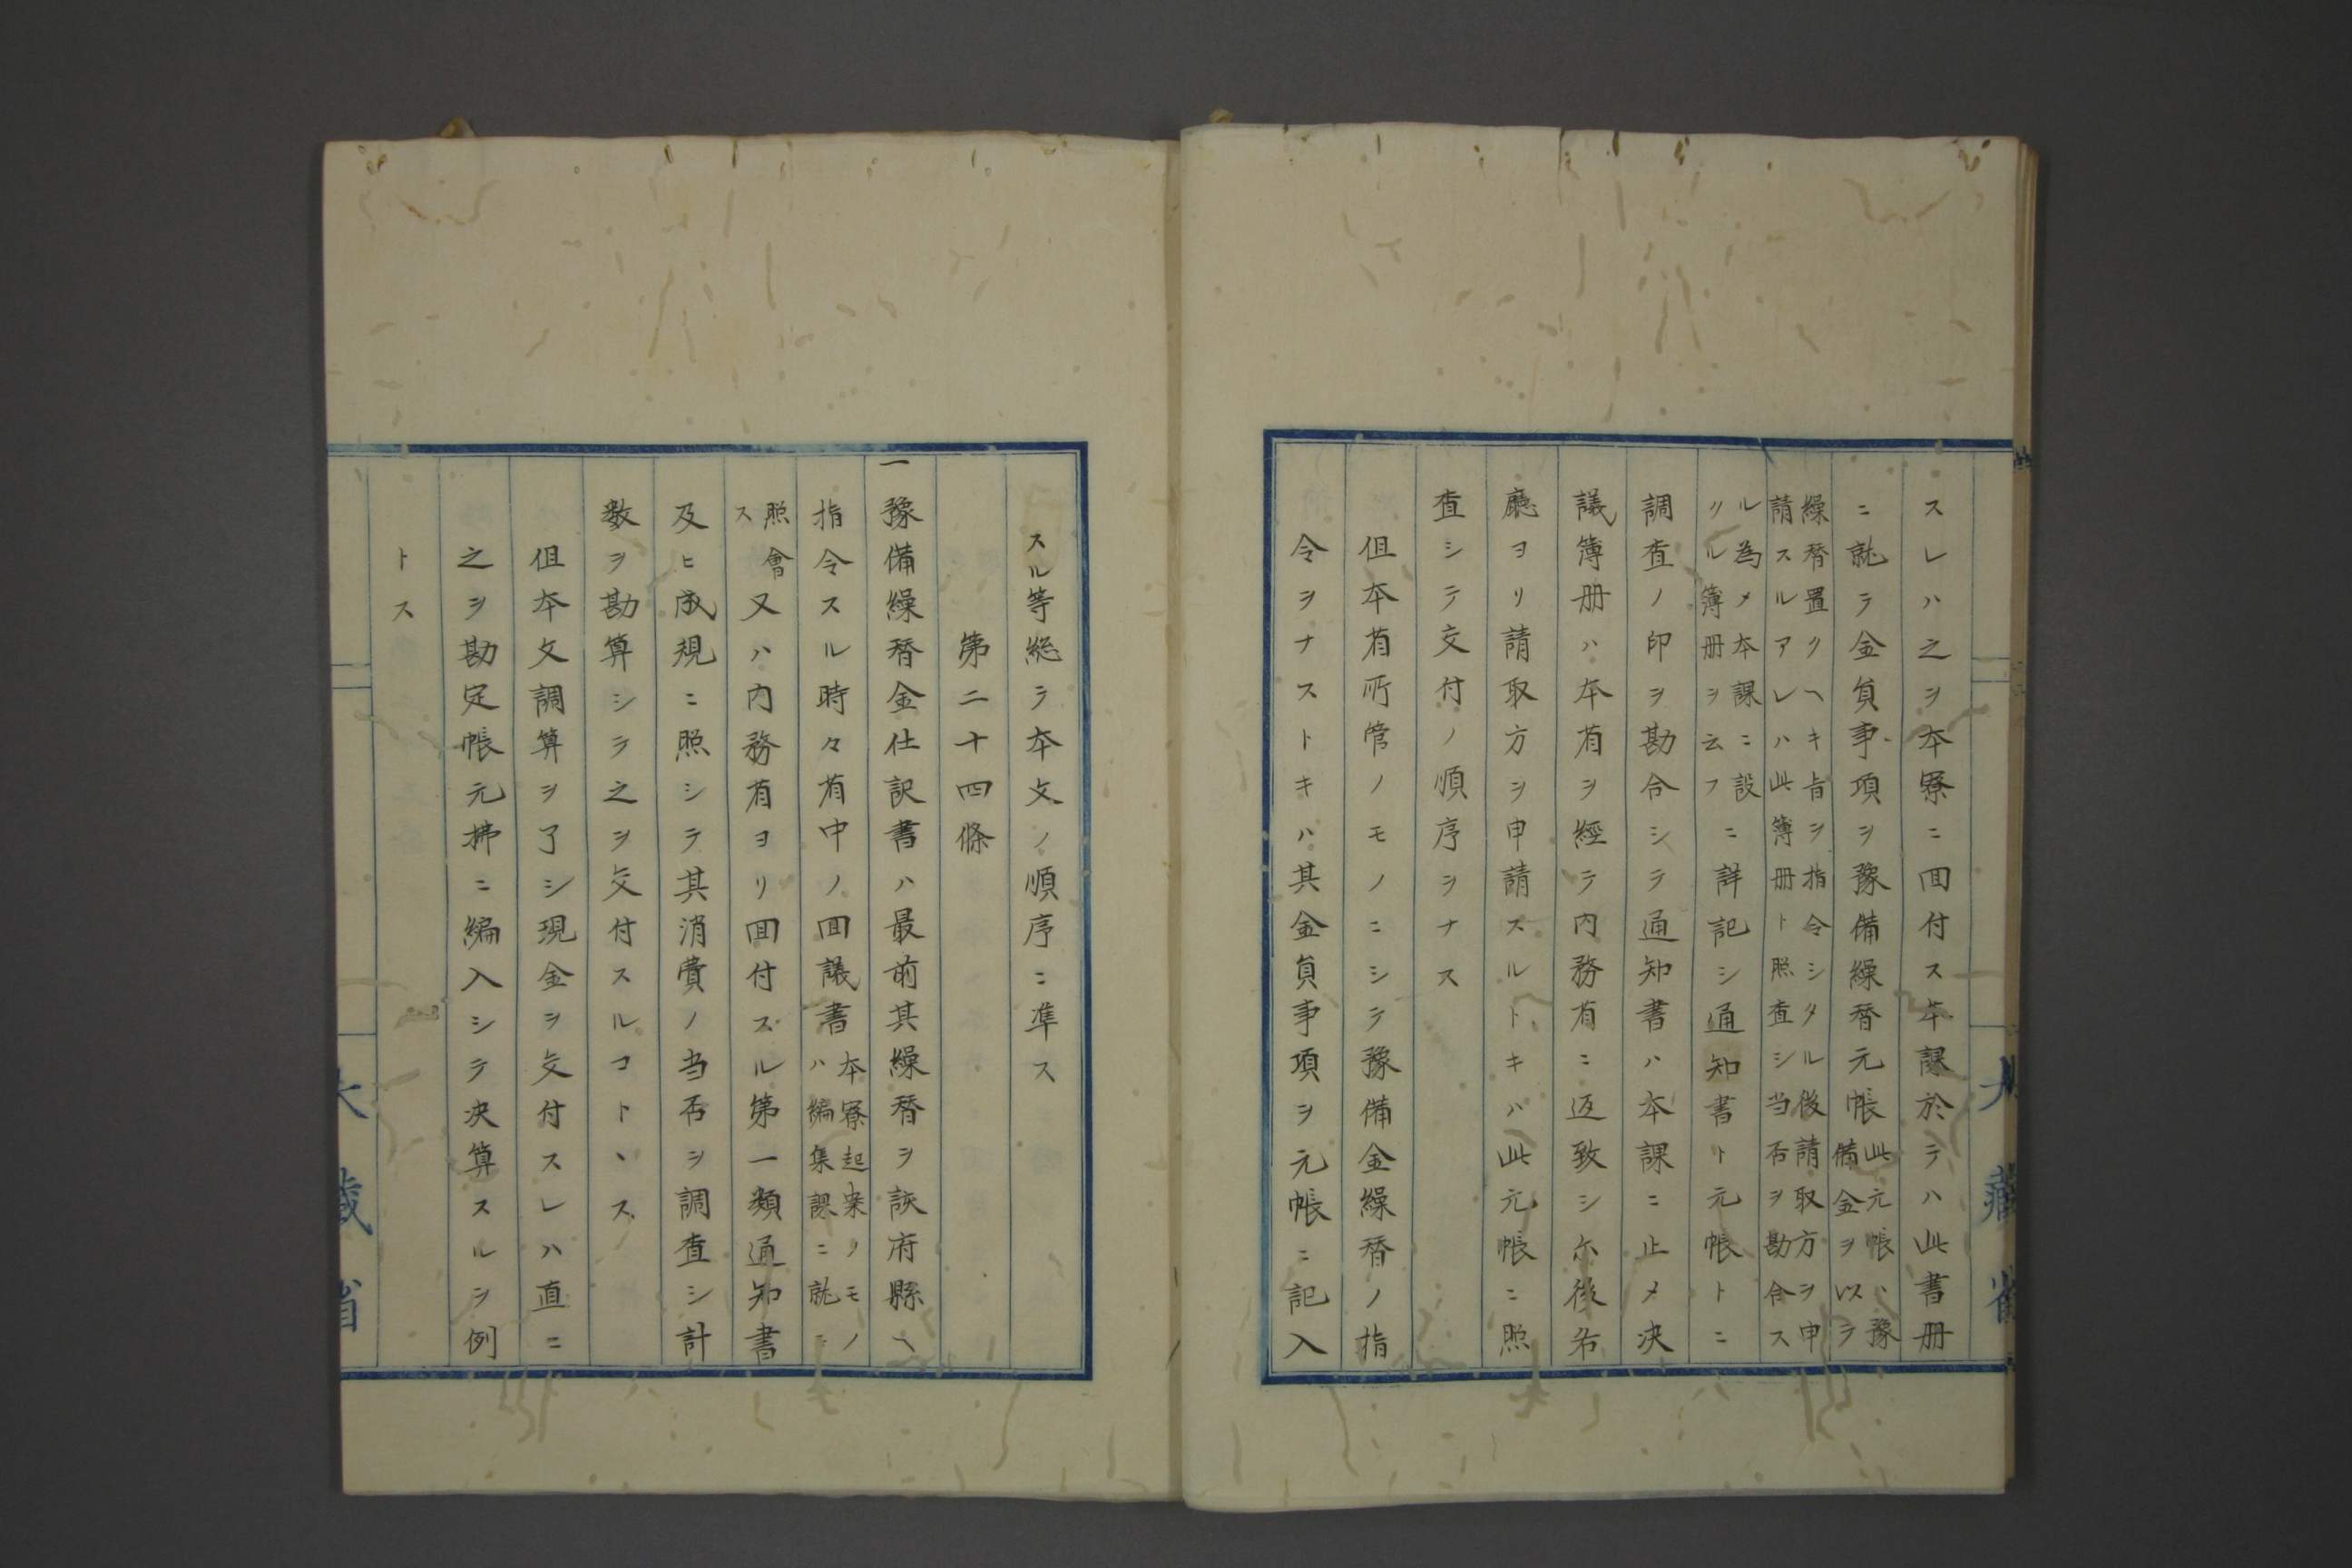 スレハ之ヲ本寮ニ回付ス本課於テハ此書册
ニ就テ金員事項ヲ豫備繰替元帳此元帳ハ豫備金ヲ以テ
繰替置クヘキ旨ヲ指令シタル後請取方ヲ申請スルアレハ此簿册ト照査シ当否ヲ勘合ス
ル為メ本課ニ設リル簿册ヲ云フニ詳記シ通知書ト元帳トニ
調査ノ印ヲ勘合シテ通知書ハ本課ニ止メ決
議簿册ハ本省ヲ經テ内務省ニ返致シ尓後右
廳ヨリ請取方ヲ申請スルトキハ此元帳ニ照
査シテ交付ノ順序ヲナス
但本省所管ノモノニシテ豫備金繰替ノ指
令ヲナストキハ其金員事項ヲ元帳ニ記入
大藏省
スル等総テ本文ノ順序ニ準ス
第二十四條
一豫備繰替金仕訳書ハ最前其繰替ヲ該府縣ヘ
指令スル時々省中ノ回議書本寮起案ノモノハ編集課ニ就ニ
照會ス又ハ内務省ヨリ回付スル第一類通知書
及ヒ成規ニ照シテ其消費ノ当否ヲ調査シ計
数ヲ勘算シテ之ヲ交付スルコトヽス
但本文調算ヲ了シ現金ヲ交付スレハ直ニ
之ヲ勘定帳元拂ニ編入シテ決算スルヲ例
トス
大藏省